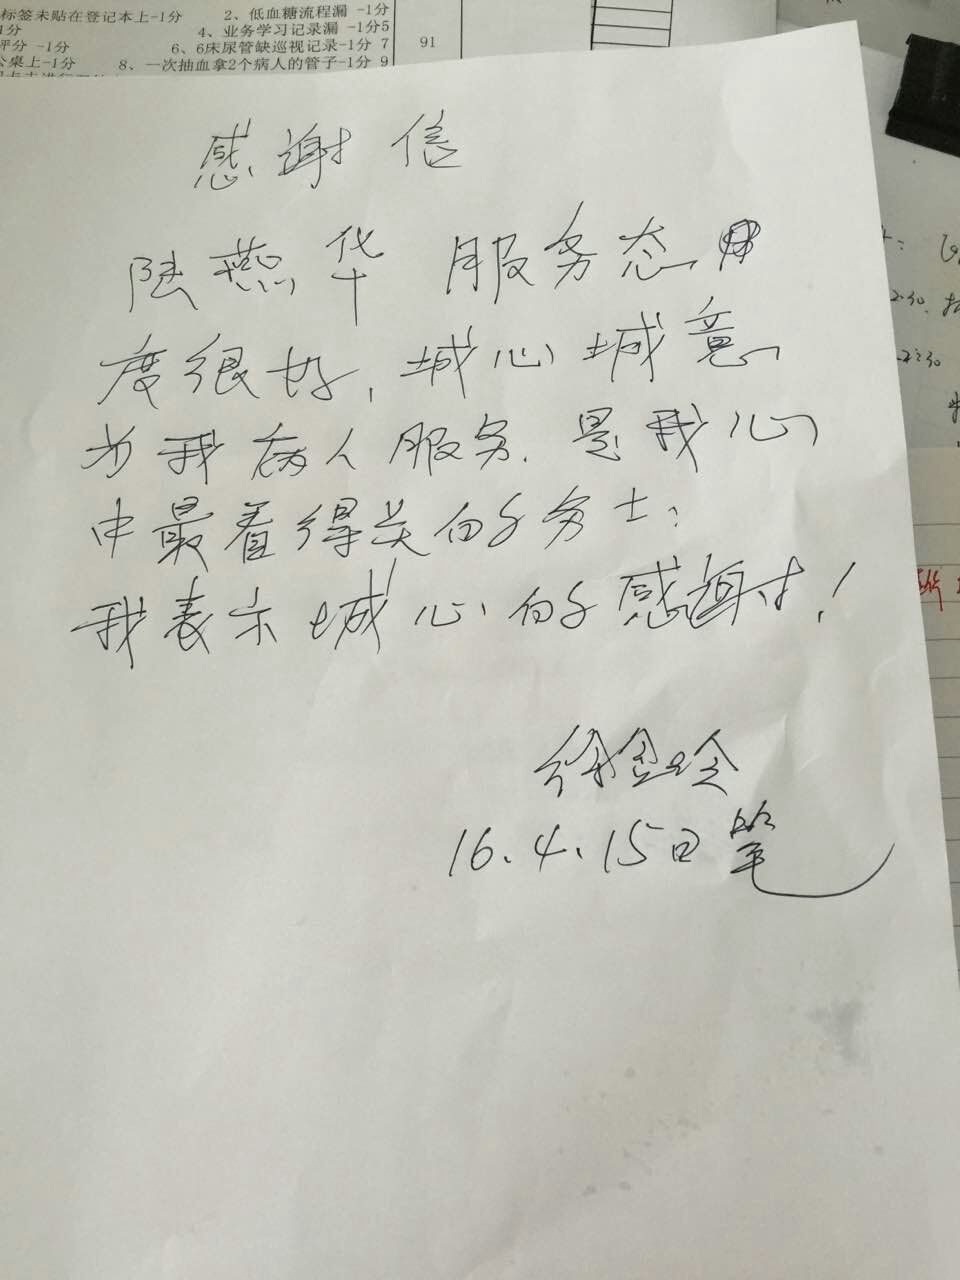 标签未贴在登记本上-1分 2、低血糖流程漏 -1分
1分 4、业务学习记录漏 -1分5
评分 -1分 6、6床尿管缺巡视记录-1分 7
桌上-1分 8、一次抽血拿2个病人的管子-1分 9
91
感谢信
陆燕华 服务态
度很好,城心城意
为我病人服务.是我心
中最着得关的务士:
我表示城心的感谢!
徐金玲
16.4.15日笔